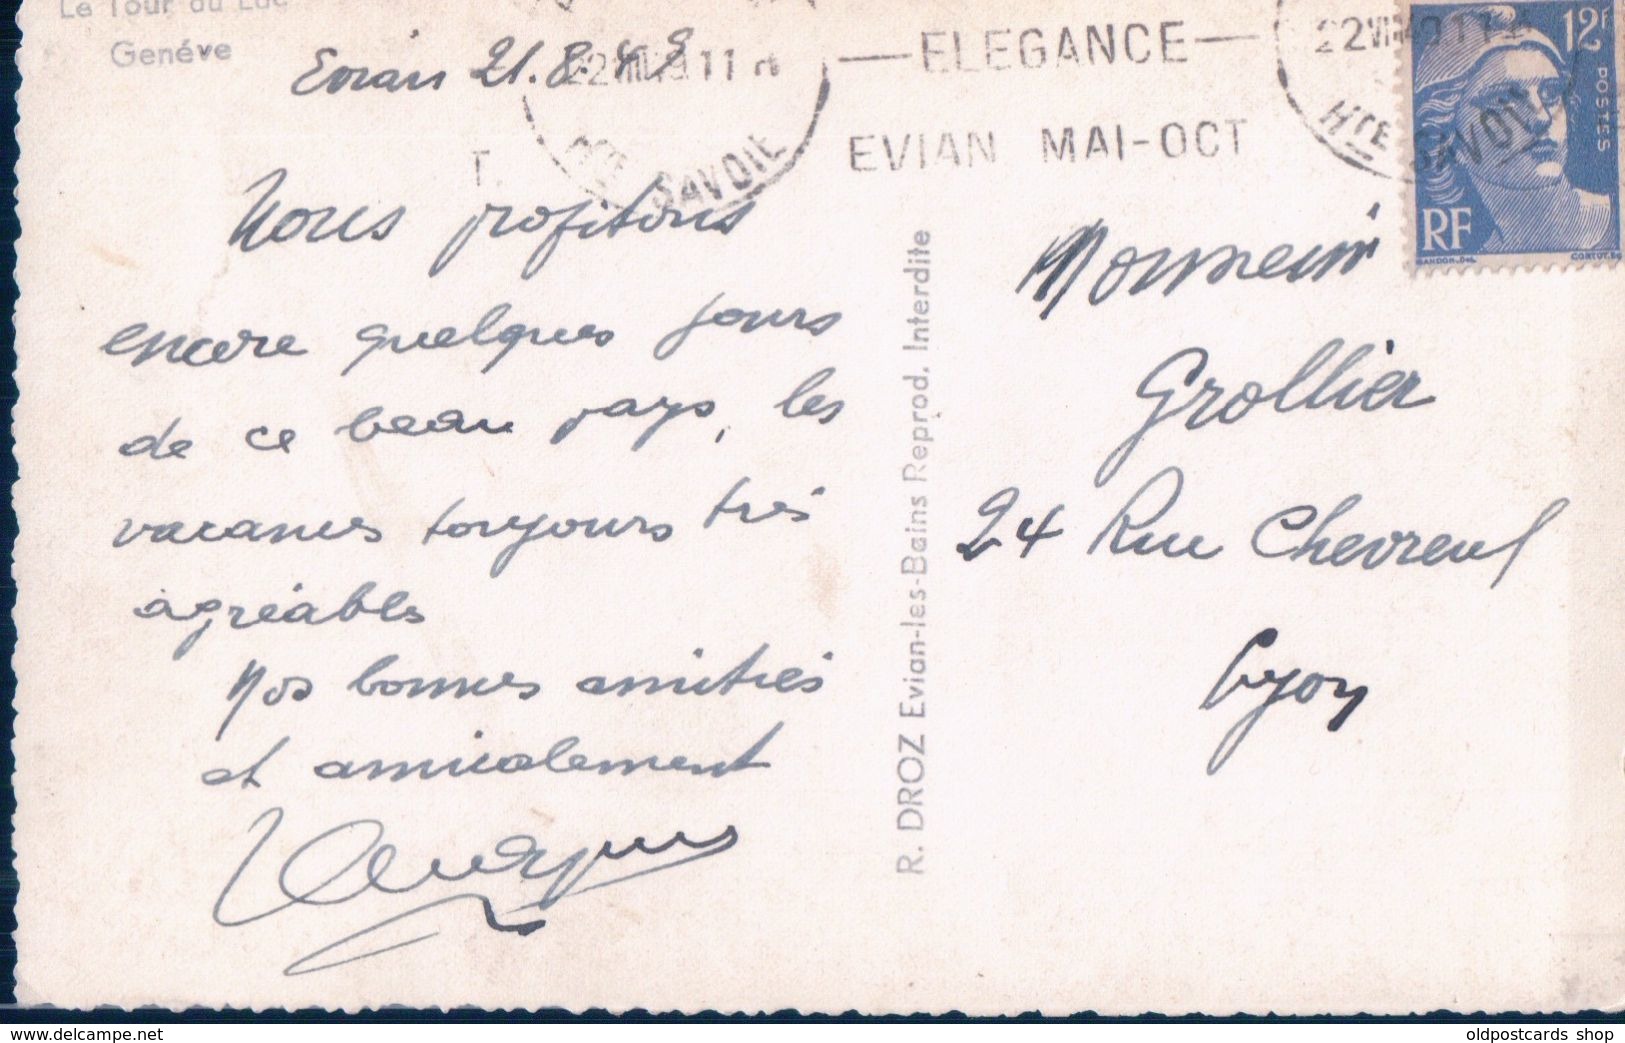 Le Tour du Lac
Genéve
Evian 21.8.49
22 VIII 49 11 H
Hte SAVOIE
ELEGANCE
EVIAN MAI-OCT
T.
22 VIII 49 11 H
Hte SAVOIE
12F
POSTES
RF
GANDON.Del.
CORTOT.Sc
Nous profitons
encore quelques jours
de ce beau pays, les
vacances toujours très
agréables
Nos bonnes amitiés
et amicalement
R. DROZ Evian-les-Bains Reprod. Interdite
Monsieur
Grollier
24 Rue Chevreul
Lyon
delcampe.net
oldpostcards shop